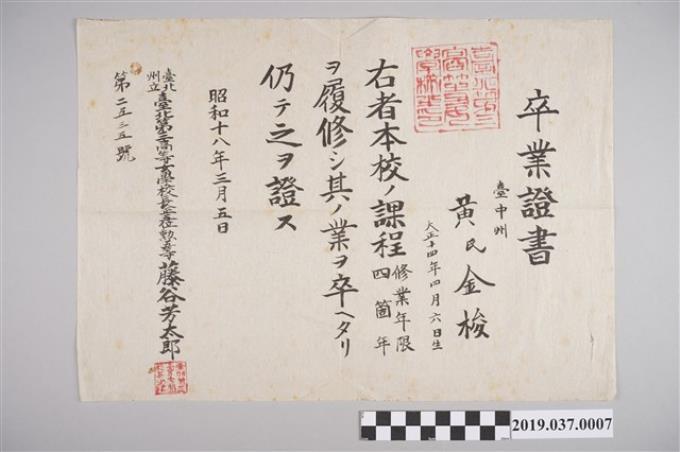 卒業證書
臺中州
黃氏金梭
大正十四年四月六日生
右者本校ノ課程修業年限四箇年
ヲ履修シ其ノ業ヲ卒ヘタリ
仍テ之ヲ證ス
昭和十八年三月五日
臺北州立臺北第三高等女學校長 藤谷芳太郎
第二五三五號
2019.037.0007